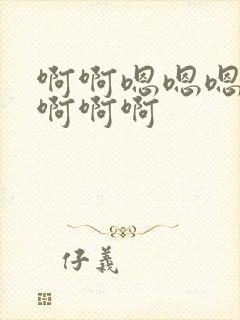 啊啊嗯嗯嗯
啊啊啊
仔義